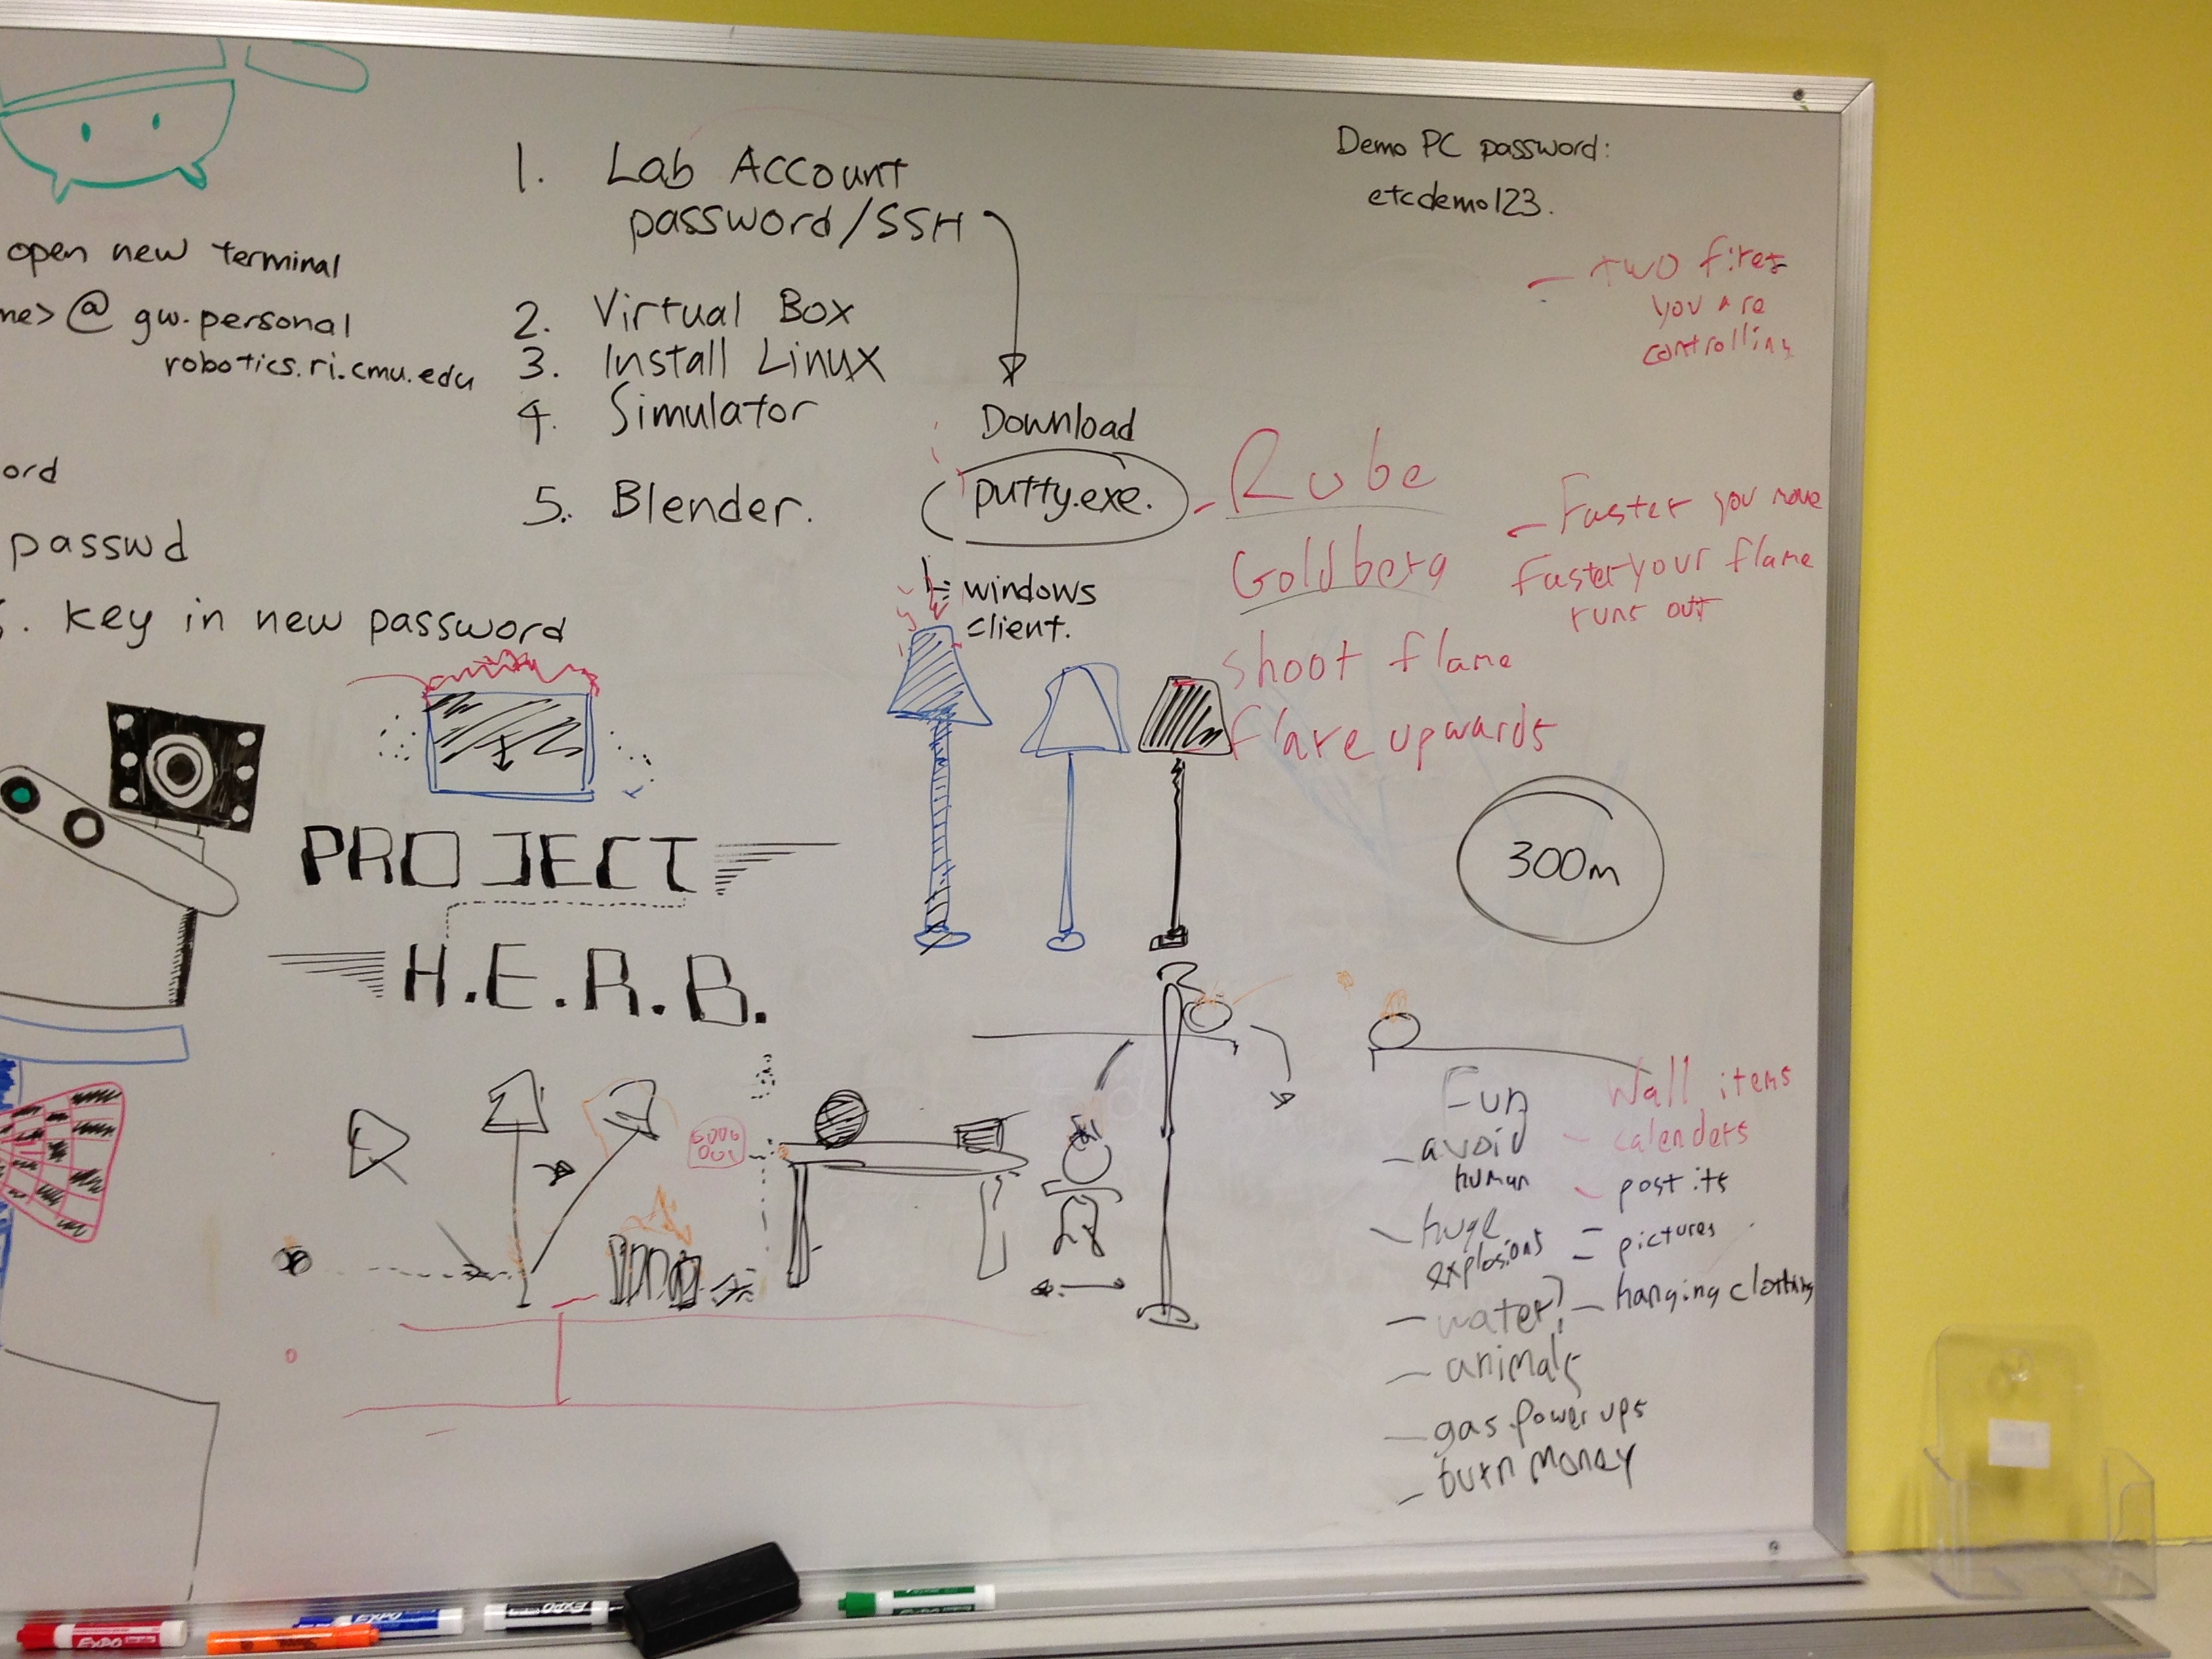 open new terminal
me> @ gw.personal
robotics.ri.cmu.edu
ord
passwd
. key in new password
1. Lab Account
password/SSH
2. Virtual Box
3. Install Linux
4. Simulator
5. Blender.
Download
putty.exe.
windows
client.
Demo PC password:
etcdemo123.
- two fires
you are
controlling
- Rube
Goldberg
shoot flame
flare upwards
- Faster you move
Faster your flame
runs out
300m
PROJECT
H.E.R.B.
Fun
- avoid
human
- huge
explosions
- water?
- animals
- gas power ups
- burn money
Wall items
- calenders
- post its
- pictures
- hanging clothing
EXPO
EXPO
EXPO